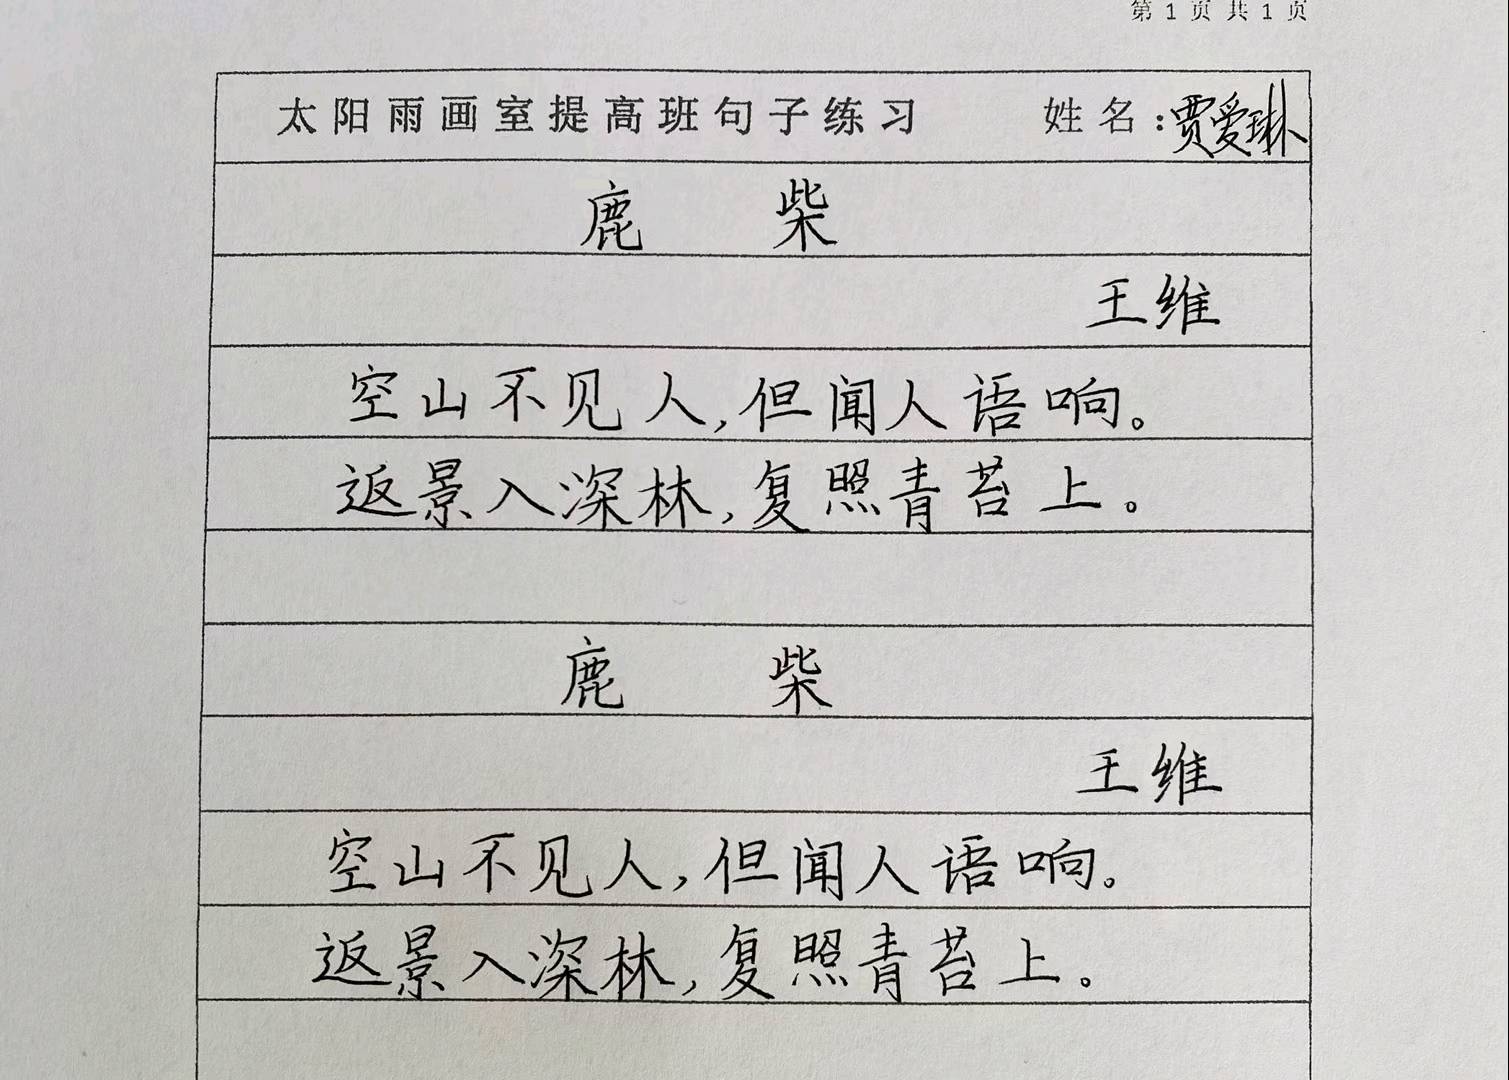 第1页共1页
太阳雨画室提高班句子练习 姓名:贾爱琳
鹿 柴
王维
空山不见人,但闻人语响。
返景入深林,复照青苔上。
鹿 柴
王维
空山不见人,但闻人语响。
返景入深林,复照青苔上。